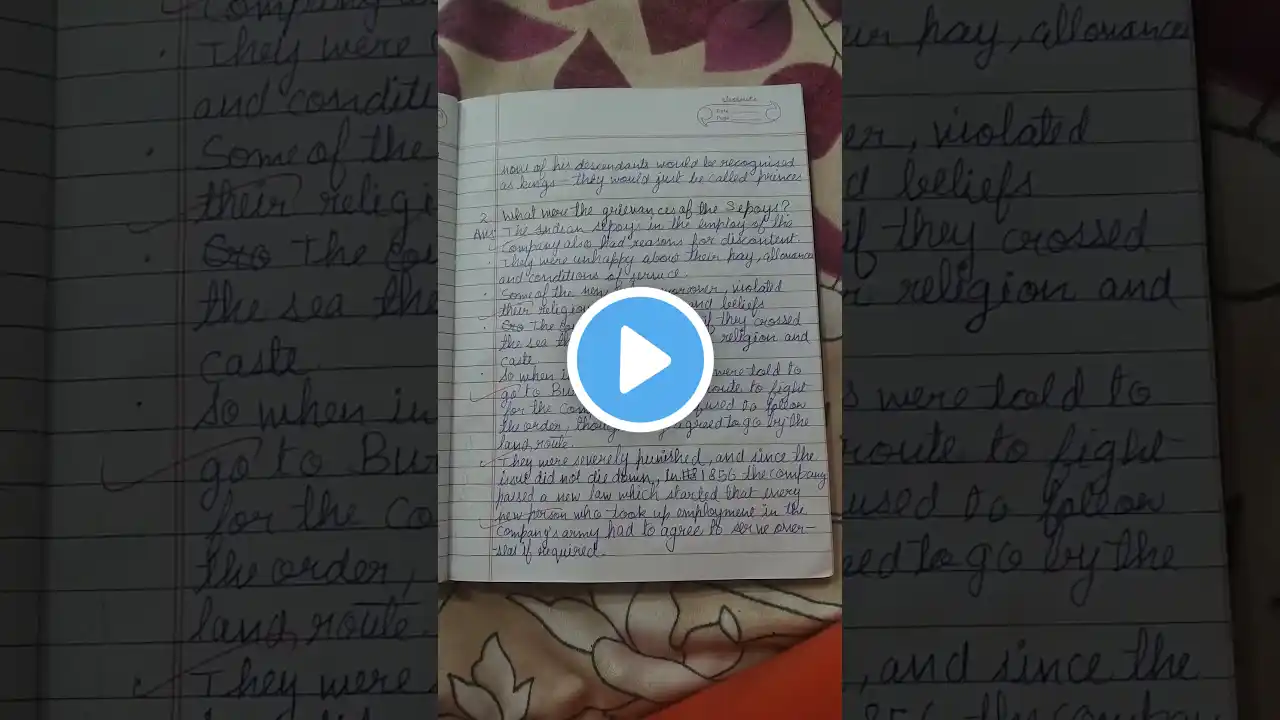 now of his descendants would be recognised
as kings - they would just be called princes
2. What were the grievances of the Sepoys?
Ans The Indian sepoys in the employ of the
Company also had reasons for discontent.
• They were unhappy about their pay, allowances
and conditions of service.
• Some of the new moreover, violated
their religious and beliefs
• The if they crossed
the sea religion and
caste
• So when were told to
go to route to fight
for the to follow
the order, agreed to go by the
land route.
They were severely punished, and since the
issue did not die down, in 1856 the company
passed a new law which started that every
new person who took up employment in the
Company's army had to agree to serve over-
-seas if required.